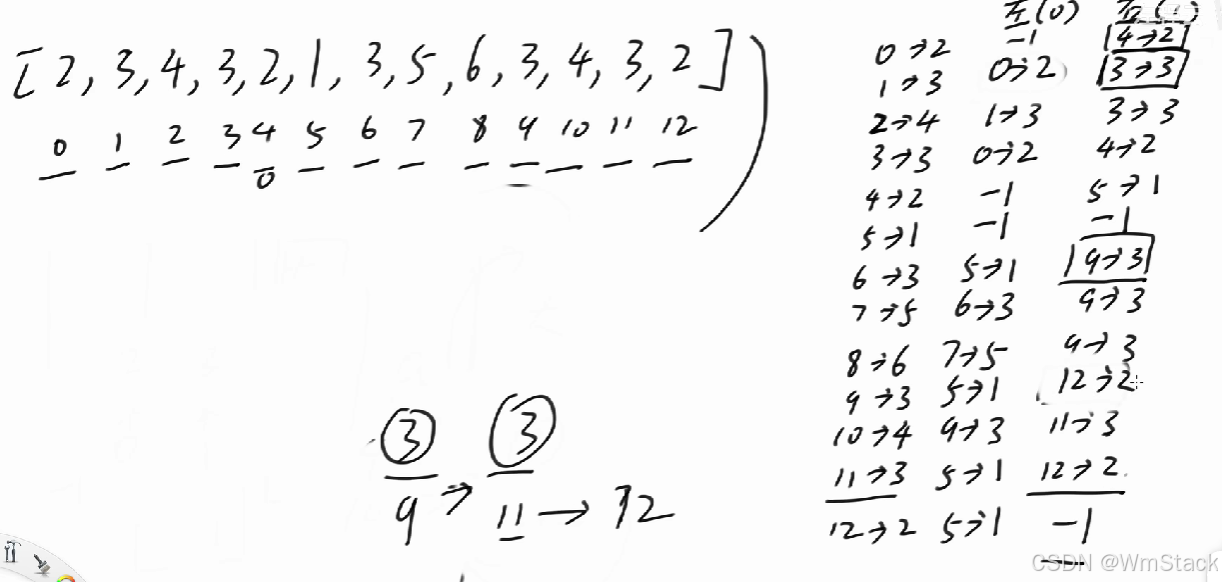 [2, 3, 4, 3, 2, 1, 3, 5, 6, 3, 4, 3, 2]
0 1 2 3 4 5 6 7 8 9 10 11 12
0
左(0)
0→2 -1 4→2
1→3 0→2 3→3
2→4 1→3 3→3
3→3 0→2 4→2
4→2 -1 5→1
5→1 -1 -1
6→3 5→1 9→3
7→5 6→3 9→3
8→6 7→5 9→3
9→3 5→1 12→2
10→4 9→3 11→3
11→3 5→1 12→2
12→2 5→1 -1
3 3
9→11→12
CSDN @WmStack